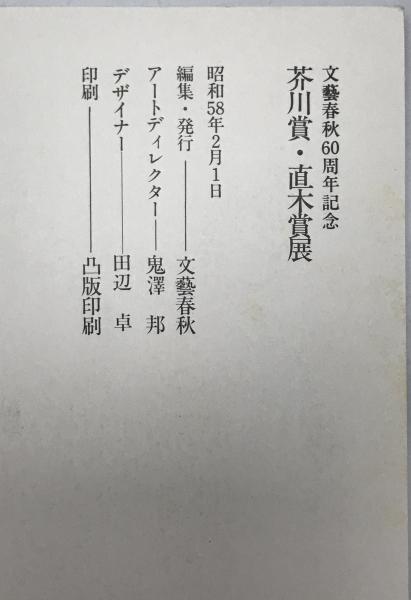 文藝春秋60周年記念
芥川賞・直木賞展
昭和58年2月1日
編集・発行――文藝春秋
アートディレクター――鬼澤 邦
デザイナー――田辺 卓
印刷――凸版印刷